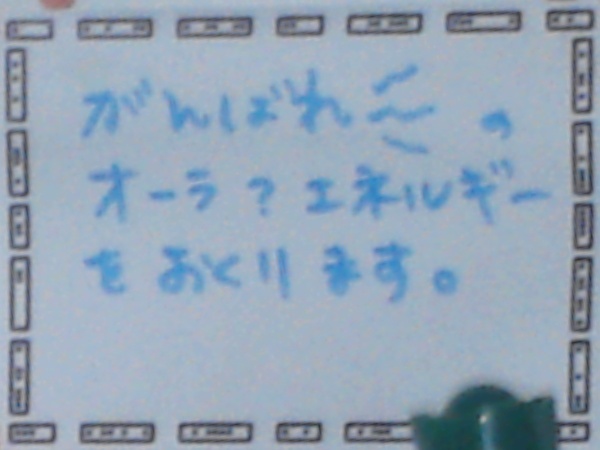 がんばれ〜の
オーラ?エネルギー
をおくります。